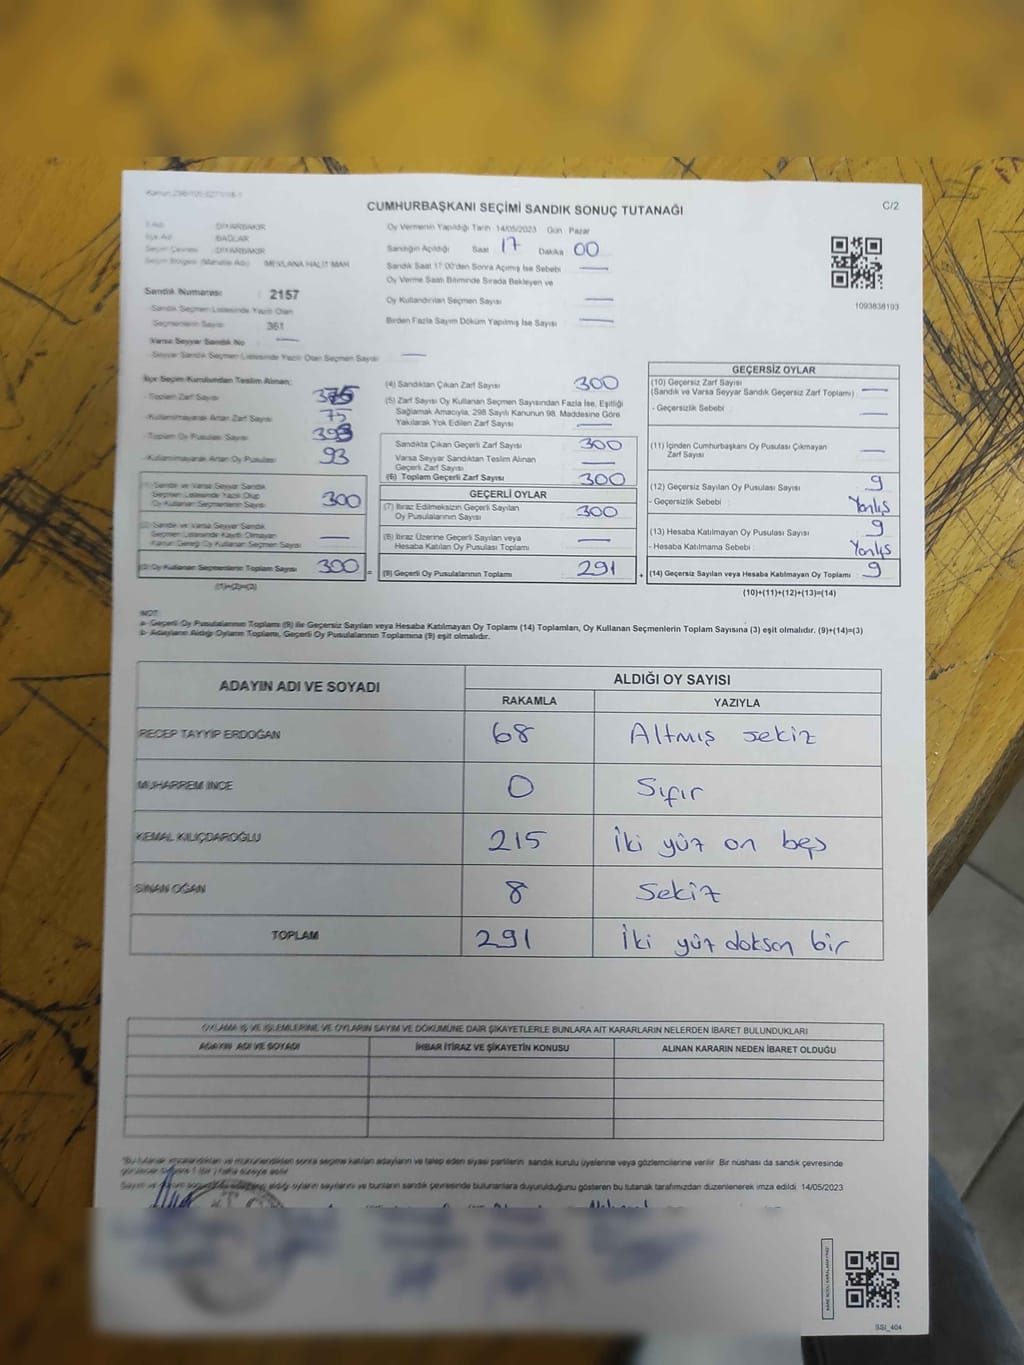 Kanun:298/105-6271/18-1
CUMHURBAŞKANI SEÇİMİ SANDIK SONUÇ TUTANAĞI
C/2
İl Adı : DİYARBAKIR
İlçe Adı : BAĞLAR
Seçim Çevresi : DİYARBAKIR
Seçim Bölgesi (Mahalle Adı) : MEVLANA HALİT MAH
Sandık Numarası : 2157
- Sandık Seçmen Listesinde Yazılı Olan
Seçmenlerin Sayısı 361
Varsa Seyyar Sandık No —
- Seyyar Sandık Seçmen Listesinde Yazılı Olan Seçmen Sayısı —
Oy Vermenin Yapıldığı Tarih 14/05/2023 Gün Pazar
Sandığın Açıldığı Saat 17 Dakika 00
Sandık Saat 17:00'den Sonra Açımış İse Sebebi —
Oy Verme Saati Bitiminde Sırada Bekleyen ve
Oy Kullandırılan Seçmen Sayısı —
Birden Fazla Sayım Döküm Yapılmış İse Sayısı —
1093838103
İlçe Seçim Kurulundan Teslim Alınan;
- Toplam Zarf Sayısı 375
- Kullanılmayarak Artan Zarf Sayısı 75
- Toplam Oy Pusulası Sayısı 393
- Kullanılmayarak Artan Oy Pusulası 93
(1) Sandık ve Varsa Seyyar Sandık
Seçmen Listesinde Yazılı Olup
Oy Kullanan Seçmenlerin Sayısı 300
(2) Sandık ve Varsa Seyyar Sandık
Seçmen Listesinde Kayıtlı Olmayan
Kanun Gereği Oy Kullanan Seçmen Sayısı —
(3) Oy Kullanan Seçmenlerin Toplam Sayısı 300 =
(1)+(2)=(3)
(4) Sandıktan Çıkan Zarf Sayısı 300
(5) Zarf Sayısı Oy Kullanan Seçmen Sayısından Fazla İse, Eşitliği
Sağlamak Amacıyla, 298 Sayılı Kanunun 98. Maddesine Göre
Yakılarak Yok Edilen Zarf Sayısı —
Sandıkta Çıkan Geçerli Zarf Sayısı 300
Varsa Seyyar Sandıktan Teslim Alınan
Geçerli Zarf Sayısı —
(6) Toplam Geçerli Zarf Sayısı 300
GEÇERLİ OYLAR
(7) İtiraz Edilmeksizin Geçerli Sayılan
Oy Pusulalarının Sayısı 300
(8) İtiraz Üzerine Geçerli Sayılan veya
Hesaba Katılan Oy Pusulası Toplamı —
(9) Geçerli Oy Pusulalarının Toplamı 291 +
GEÇERSİZ OYLAR
(10) Geçersiz Zarf Sayısı
(Sandık ve Varsa Seyyar Sandık Geçersiz Zarf Toplamı) —
- Geçersizlik Sebebi : —
(11) İçinden Cumhurbaşkanı Oy Pusulası Çıkmayan
Zarf Sayısı —
(12) Geçersiz Sayılan Oy Pusulası Sayısı 9
- Geçersizlik Sebebi : Yanlış
(13) Hesaba Katılmayan Oy Pusulası Sayısı 9
- Hesaba Katılmama Sebebi : Yanlış
(14) Geçersiz Sayılan veya Hesaba Katılmayan Oy Toplamı 9
(10)+(11)+(12)+(13)=(14)
NOT:
a- Geçerli Oy Pusulalarının Toplamı (9) ile Geçersiz Sayılan veya Hesaba Katılmayan Oy Toplamı (14) Toplamları, Oy Kullanan Seçmenlerin Toplam Sayısına (3) eşit olmalıdır. (9)+(14)=(3)
b- Adayların Aldığı Oyların Toplamı, Geçerli Oy Pusulalarının Toplamına (9) eşit olmalıdır.
ADAYIN ADI VE SOYADI
ALDIĞI OY SAYISI
RAKAMLA YAZIYLA
RECEP TAYYİP ERDOĞAN 68 Altmış sekiz
MUHARREM İNCE 0 Sıfır
KEMAL KILIÇDAROĞLU 215 İki yüz on beş
SİNAN OĞAN 8 Sekiz
TOPLAM 291 İki yüz doksan bir
OYLAMA İŞ VE İŞLEMLERİNE VE OYLARIN SAYIM VE DÖKÜMÜNE DAİR ŞİKAYETLERLE BUNLARA AİT KARARLARIN NELERDEN İBARET BULUNDUKLARI
ADAYIN ADI VE SOYADI İHBAR İTİRAZ VE ŞİKAYETİN KONUSU ALINAN KARARIN NEDEN İBARET OLDUĞU
*Bu tutanak imzalandıktan ve mühürlendikten sonra seçime katılan adayların ve talep eden siyasi partilerin sandık kurulu üyelerine veya gözlemcilerine verilir. Bir nüshası da sandık çevresinde
aldığı oyların sayılarını ve bunların sandık çevresinde bulunanlara duyurulduğunu gösteren bu tutanak tarafımızdan düzenlenerek imza edildi. 14/05/2023
SSI_404